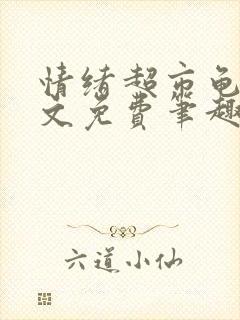 情绪超市龟
文免费笔趣
六道小仙